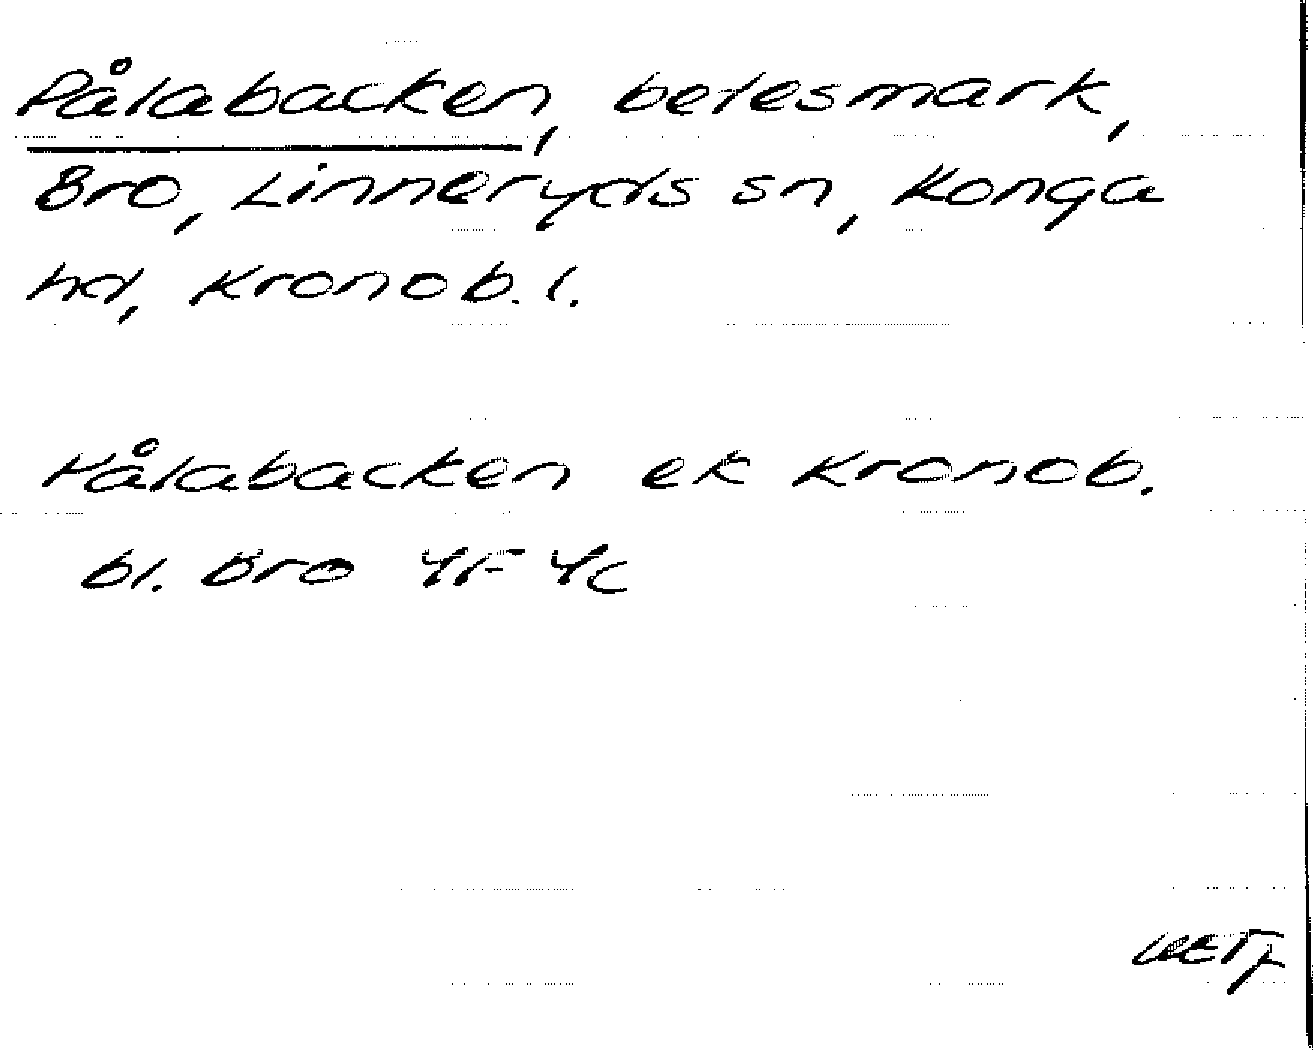 Pålabacken, betesmark,
Bro, Linneryds sn, Konga
hd, Kronob. l.
Hålabacken ek Kronob.
bl. Bro 4F 4c